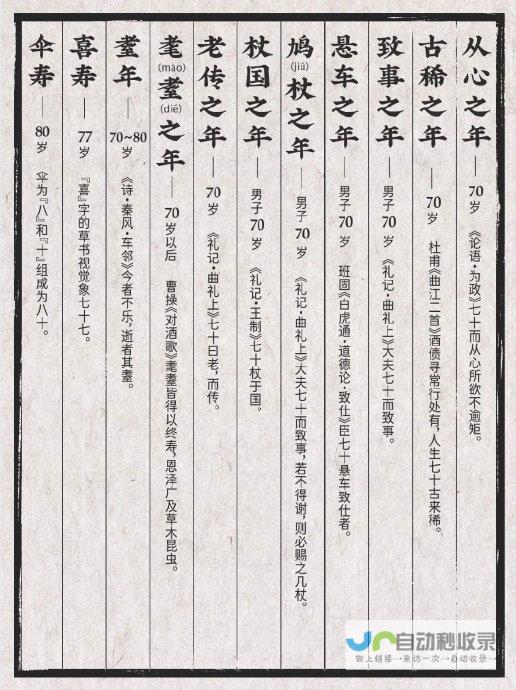 从心之年——70岁 《论语·为政》七十而从心所欲不逾矩。
古稀之年——70岁 杜甫《曲江二首》酒债寻常行处有，人生七十古来稀。
致事之年——男子70岁 《礼记·曲礼上》大夫七十而致事。
悬车之年——男子70岁 班固《白虎通·道德论·致仕》臣七十悬车致仕者。
鸠(jiū)杖之年——男子70岁 《礼记·曲礼上》大夫七十而致事，若不得谢，则必赐之几杖。
杖国之年——男子70岁 《礼记·王制》七十杖于国。
老传之年——70岁 《礼记·曲礼上》七十曰老，而传。
耄(mào)耋(dié)之年——70岁以后 曹操《对酒歌》耄耋皆得以终寿，恩泽广及草木昆虫。
耋年——70~80岁 《诗·秦风·车邻》今者不乐，逝者其耋。
喜寿——77岁 『喜』字的草书视觉象七十七。
伞寿——80岁 伞为『八』和『十』组成为八十。
自动秒收录
做上链接→来访一次→自动收录